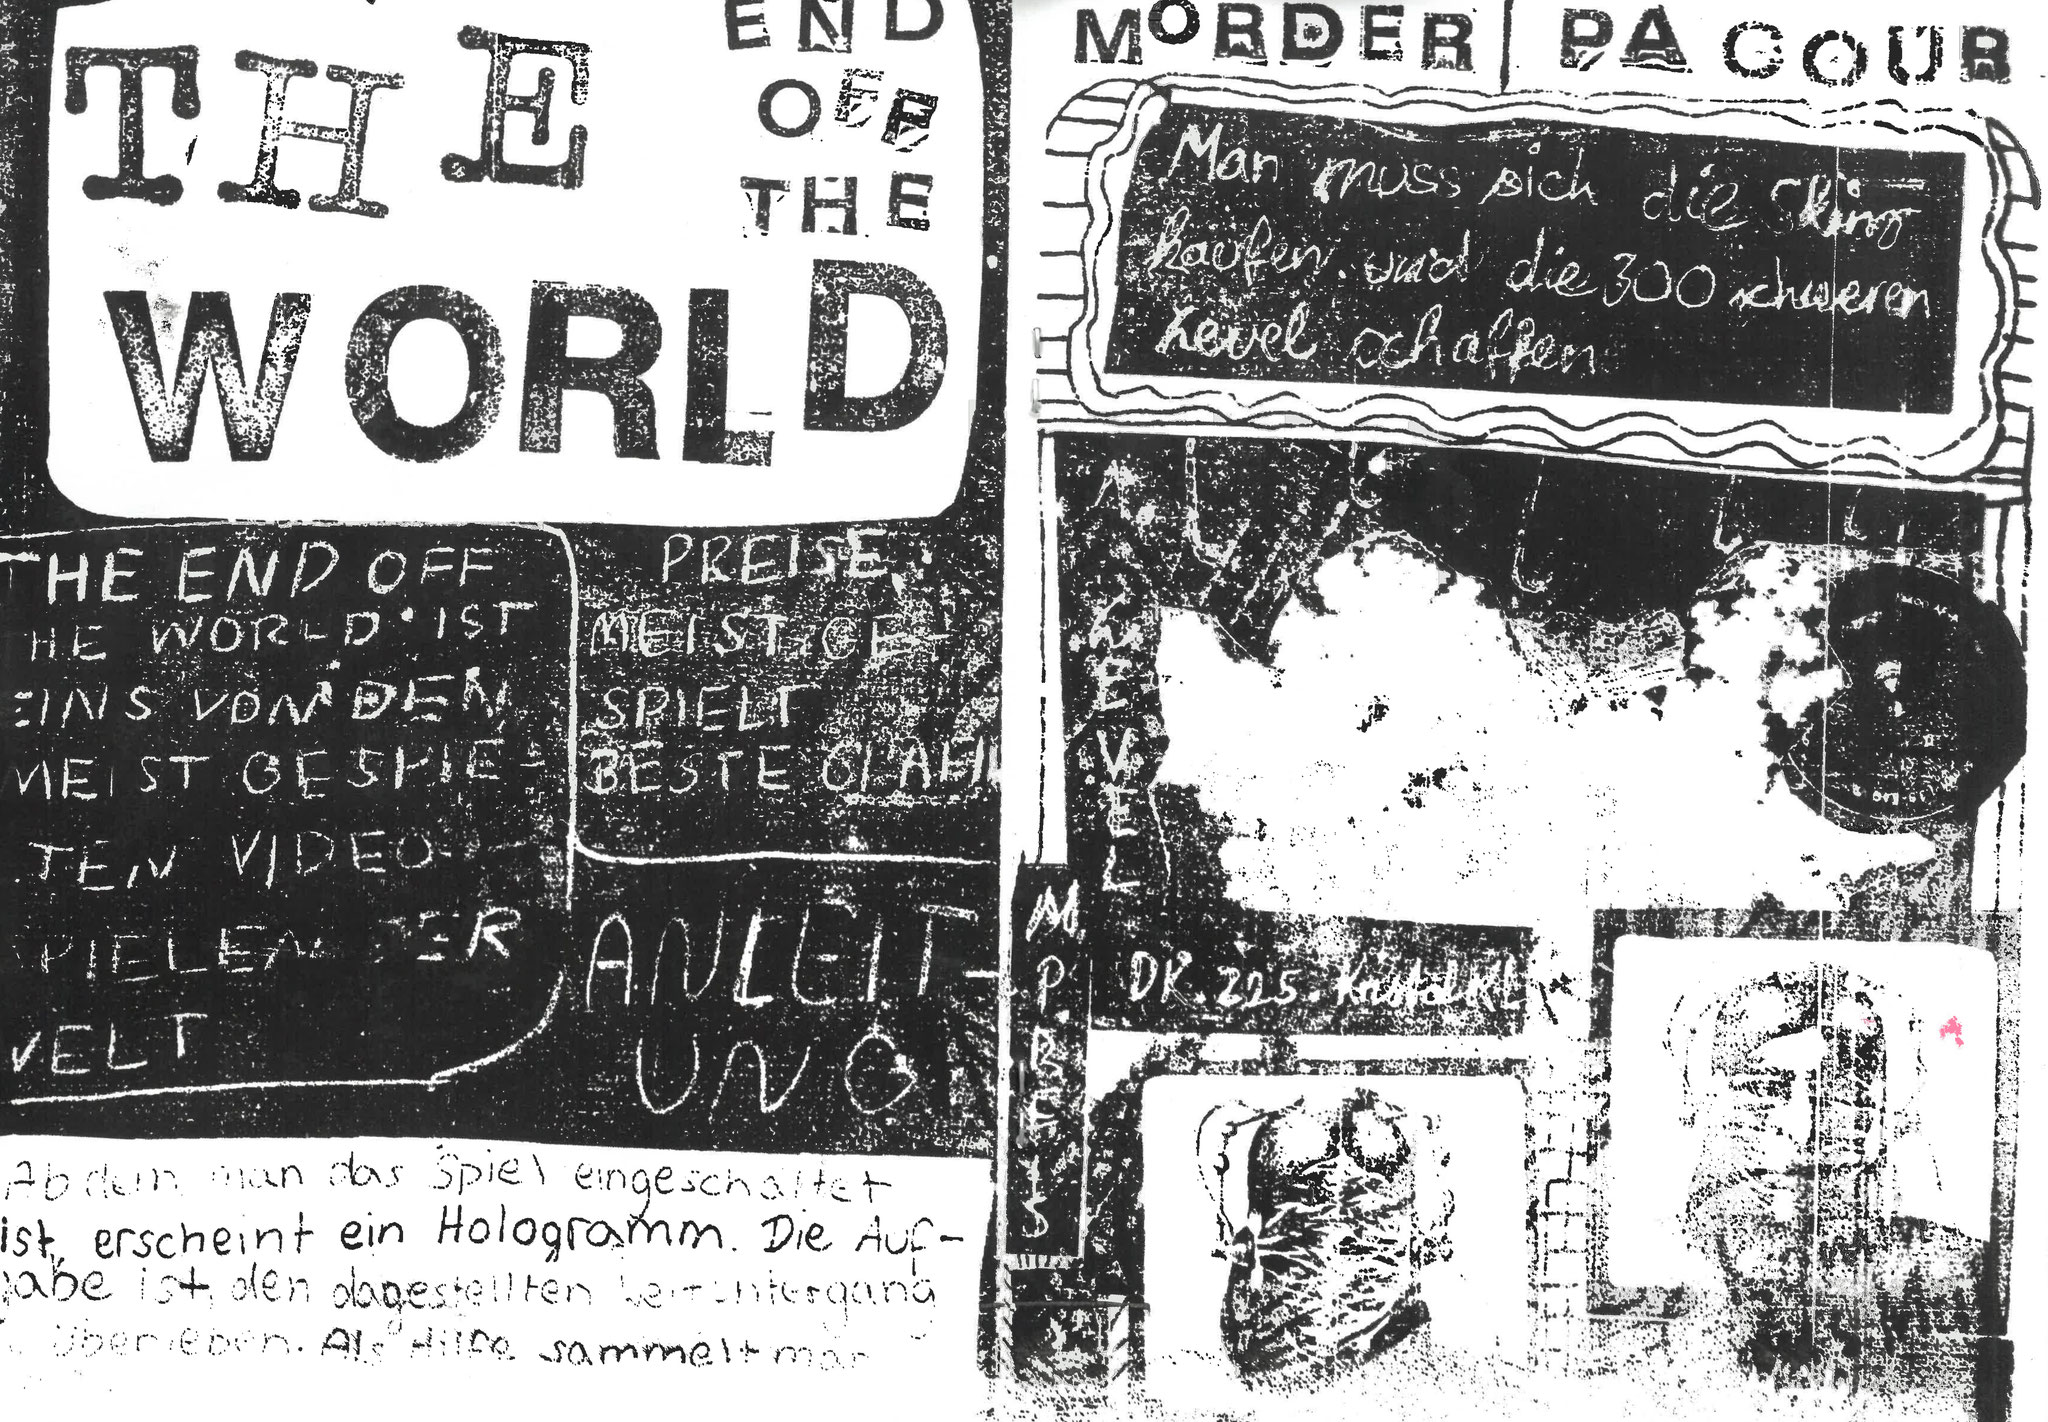 THE
END
OFF
THE
WORLD
THE END OFF
HE WORLD IST
EINS VON DEN
MEIST GESPIE-
TEN VIDEO-
PIELEN DER
WELT
PREISE:
MEIST GE-
SPIELT
BESTE GRAFIK
ANLEIT-
UNG
Ab dem man das Spiel eingeschaltet
ist, erscheint ein Hologramm. Die Auf-
gabe ist, den dagestellten Weltuntergang
überleben. Als Hilfe sammelt man
MORDER PACOUR
Man muss sich die Skins
kaufen und die 300 schweren
Level schaffen
LEVEL
DK. 225.